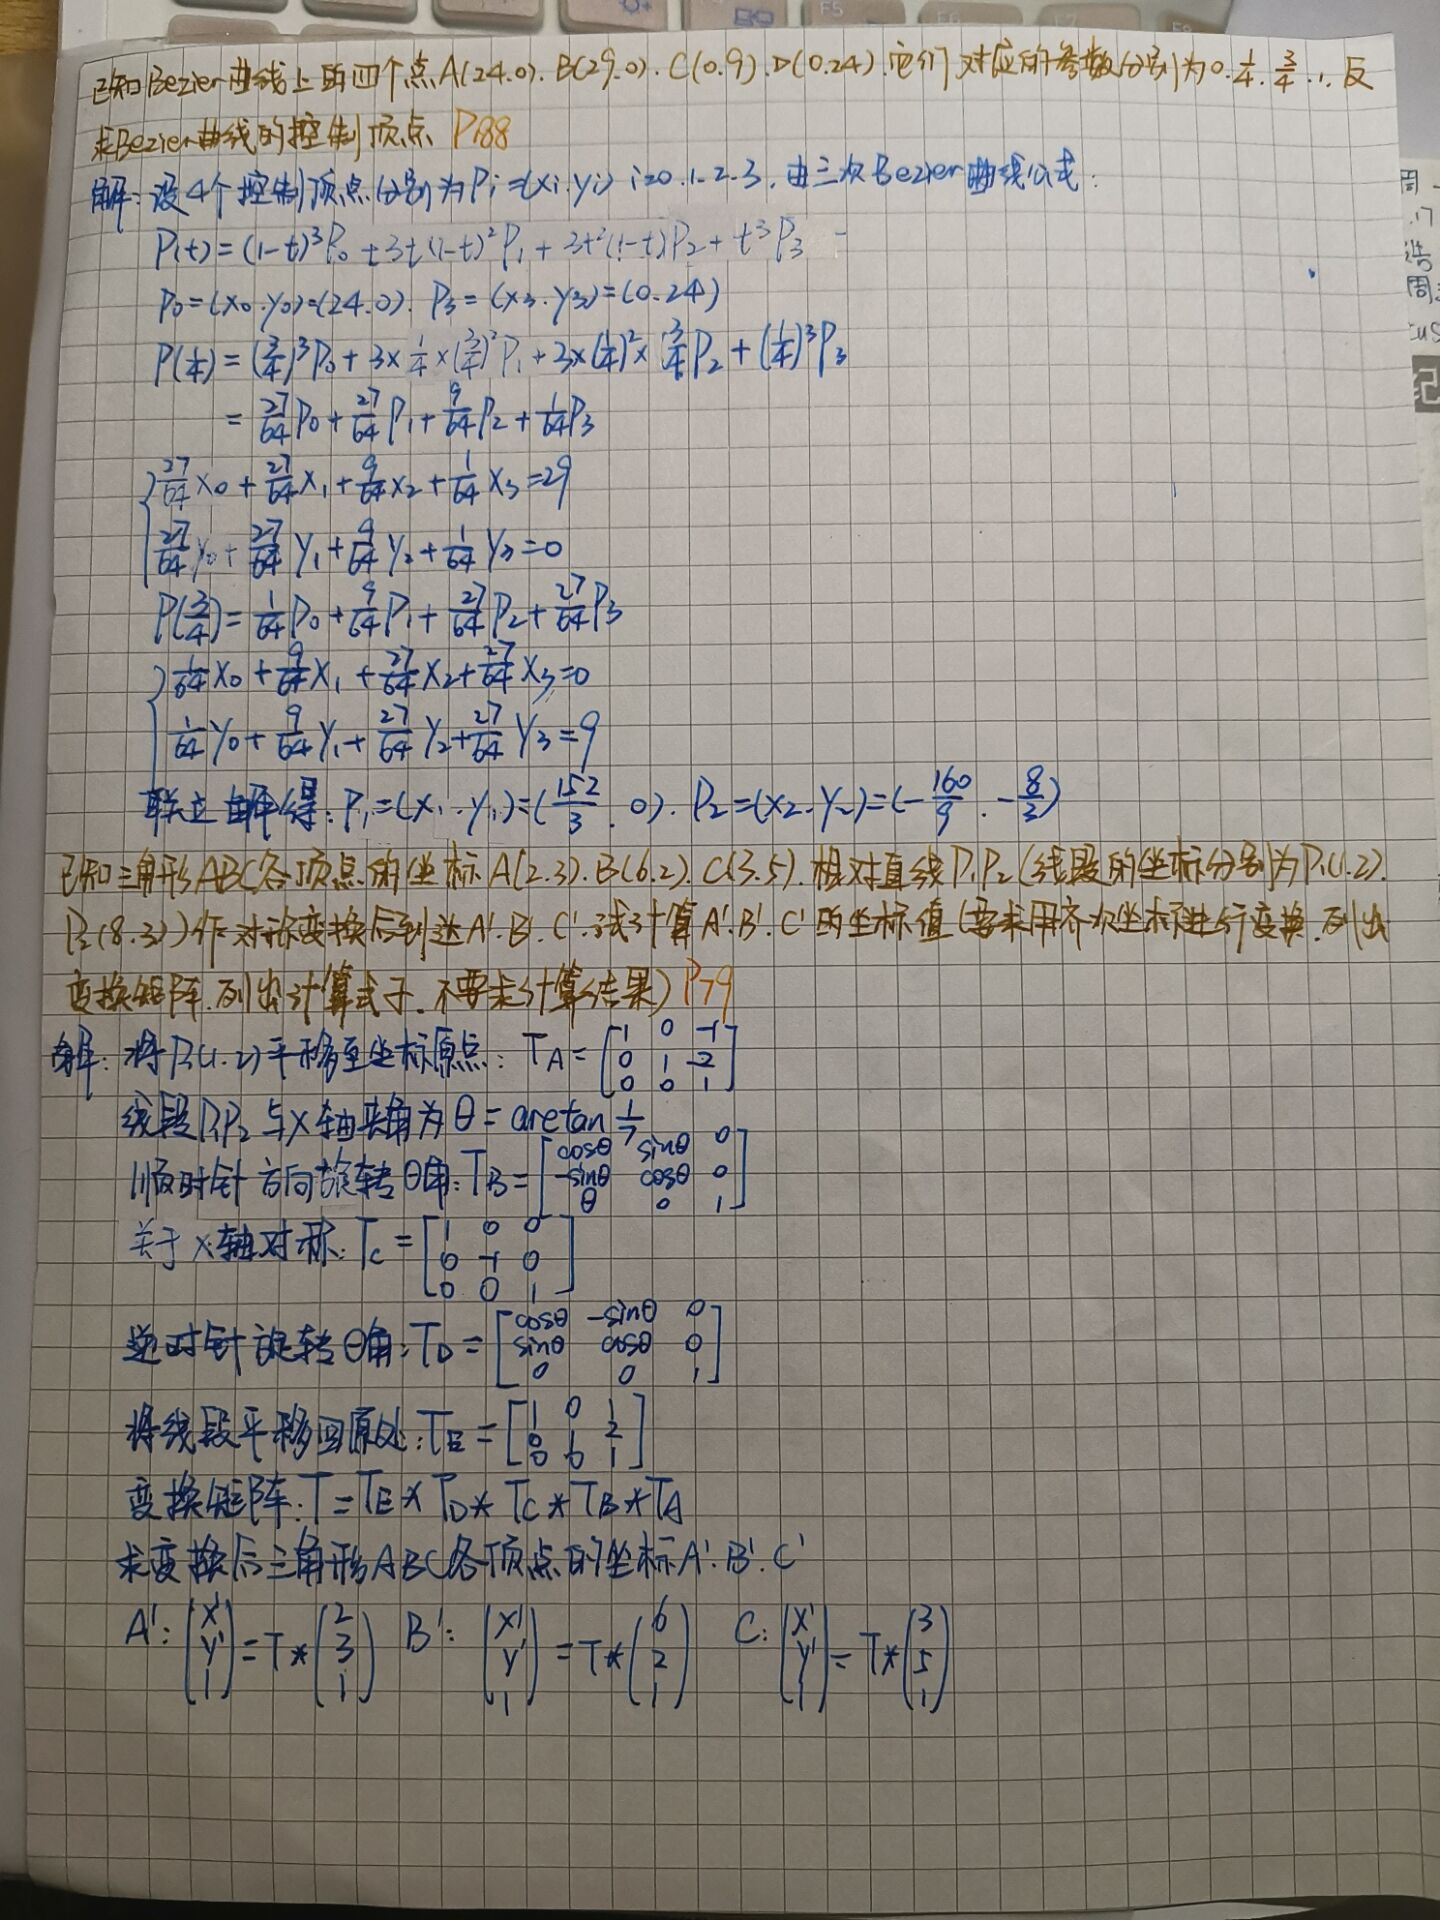 已知Bezier曲线上的四个点A(24.0).B(29.0).C(0.9).D(0.24).它们对应的参数分别为0.1/4.3/4.1.反
求Bezier曲线的控制顶点 P188
解:设4个控制顶点分别为Pi=(xi.yi) i=0.1.2.3.由三次Bezier曲线公式:
P(t)=(1-t)³P₀+3t(1-t)²P₁+3t²(1-t)P₂+t³P₃
P₀=(x₀.y₀)=(24.0). P₃=(x₃.y₃)=(0.24)
P(1/4)=(3/4)³P₀+3×1/4×(3/4)²P₁+3×(1/4)²×3/4P₂+(1/4)³P₃
=27/64P₀+27/64P₁+9/64P₂+1/64P₃
27/64x₀+27/64x₁+9/64x₂+1/64x₃=29
27/64y₀+27/64y₁+9/64y₂+1/64y₃=0
P(3/4)=1/64P₀+9/64P₁+27/64P₂+27/64P₃
1/64x₀+9/64x₁+27/64x₂+27/64x₃=0
1/64y₀+9/64y₁+27/64y₂+27/64y₃=9
联立解得:P₁=(x₁.y₁)=(152/3.0). P₂=(x₂.y₂)=(-160/9.-8/3)
已知三角形ABC各顶点的坐标A(2.3).B(6.2).C(3.5).相对直线P₁P₂(线段的坐标分别为P₁(1.2).
P₂(8.3))作对称变换后到达A'.B'.C'.试计算A'.B'.C'的坐标值(要求用齐次坐标进行变换.列出
变换矩阵.列出计算式子.不要求计算结果)P79
解:将P₁(1.2)平移至坐标原点:T_A=[1 0 -1
0 1 -2
0 0 1]
线段P₁P₂与X轴夹角为θ=arctan 1/7
顺时针方向旋转θ角:T_B=[cosθ sinθ 0
-sinθ cosθ 0
0 0 1]
关于x轴对称:T_C=[1 0 0
0 -1 0
0 0 1]
逆时针旋转θ角:T_D=[cosθ -sinθ 0
sinθ cosθ 0
0 0 1]
将线段平移回原处:T_E=[1 0 1
0 1 2
0 0 1]
变换矩阵:T=T_E*T_D*T_C*T_B*T_A
求变换后三角形ABC各顶点的坐标A'.B'.C'
A':(x' y' 1)=T*(2 3 1) B':(x' y' 1)=T*(6 2 1) C:(x' y' 1)=T*(3 5 1)